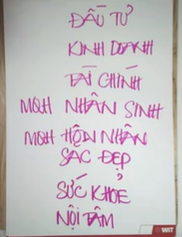 ĐẦU TƯ
KINH DOANH
TÀI CHÍNH
MQH NHÂN SINH
MQH HÔN NHÂN
SẮC ĐẸP
SỨC KHOẺ
NỘI TÂM
WIT